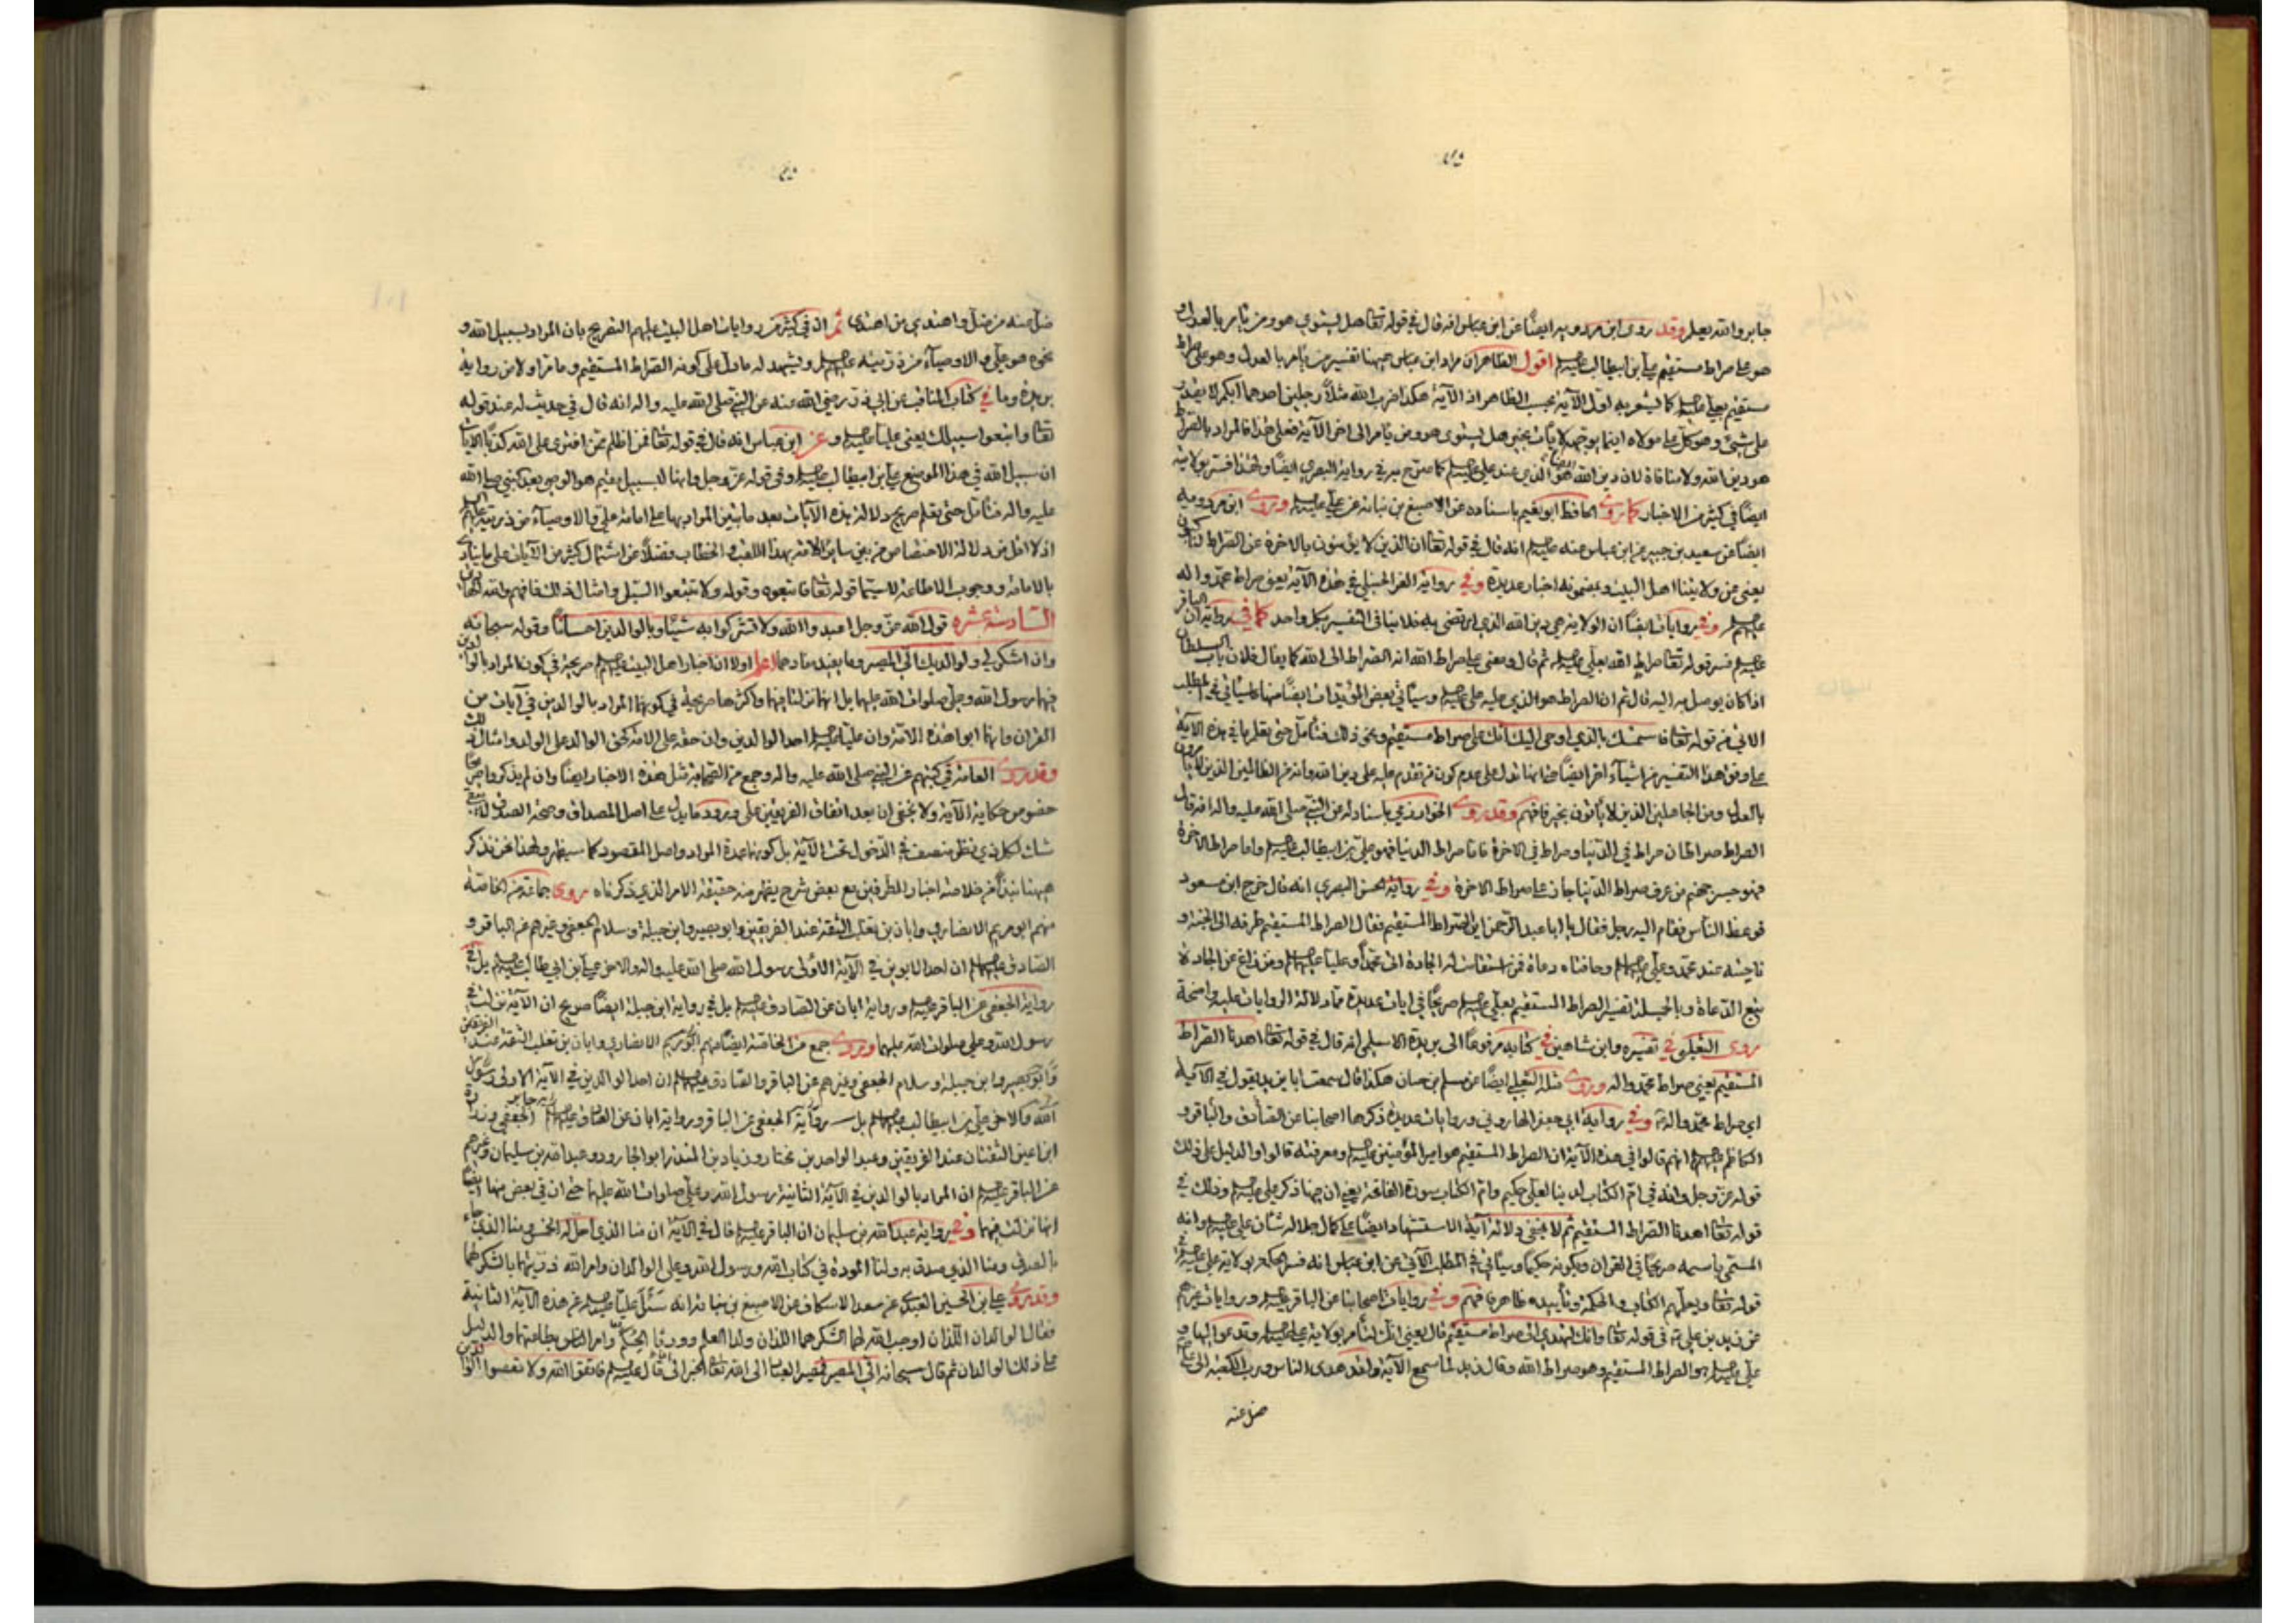 جابر والله يعلم وقد روى ابن مردويه ايضاً عن ابن عباس انه قال في قوله تعا هل يستوي هو ومن يامر بالعدل و
هو على صراط مستقيم علي بن ابيطالب عليه السلم اقول الظاهر ان مراد ابن عباس ههنا تفسير من يامر بالعدل وهو على صراط
مستقيم بعلي عليه السلم كما يشعر به اول الآية بحسب الظاهر اذ الآية هكذا ضرب الله مثلاً رجلين احدهما ابكم لا يقدر
على شيء وهو كل على مولاه اينما يوجهه لا يأت بخير هل يستوى هو ومن يامر الى اخر الآية فعلى هذا فالمراد بالصراط
هو دين الله ولا منافاة لان دين الله هو الذي عند علي عليه السلم كما صرح به في رواية البصري ايضاً ولهذا فسر بولايته
ايضاً في كثير من الاخبار كما روى الحافظ ابو نعيم باسناده عن الاصبغ بن نباتة عن علي عليه السلم وروى ابن مردويه
ايضاً عن سعيد بن جبير عن ابن عباس عنه عليه السلم انه قال في قوله تعا ان الذين لا يؤمنون بالاخرة عن الصراط لناكبون
يعني عن ولايتنا اهل البيت وبمضمونه اخبار عديدة وفي رواية العز الحنبلي في هذه الآية يعني صراط محمد واله
عليهم السلم وفي روايات ايضاً ان الولاية هي دين الله الذي ارتضى به فلا ينافى التفسير بكل واحد كما في رواية ان الباقر
عليه السلم فسر قوله تعا صراط الله بعلي عليه السلم ثم قال ومعنى على صراط الله انه الصراط الى الله كما يقال فلان باب السلطان
اذا كان يوصل به اليه قال ثم ان الصراط هو الذي عليه علي عليه السلم وسياتي بعض المؤيدات ايضاً منها ما سياتي في المطلب
الاتي في قوله تعا فاستمسك بالذي اوحى اليك انك على صراط مستقيم ونحو ذلك فتامل حتى تعلم ما في هذه الآية
على وفق هذا التفسير من اشياء اخر ايضاً
بالعدل ومن الجاهلين الذين لا يأتون بخير فافهم وقد روى الخوارزمي باسناده عن النبي صلى الله عليه واله انه قال
الصراط صراطان صراط في الدنيا وصراط في الاخرة فاما صراط الدنيا فهو علي بن ابيطالب عليه السلم واما صراط الآخرة
فهو جسر جهنم من عرف صراط الدنيا جاز على صراط الاخرة وفي رواية الحسن البصري انه قال خرج ابن مسعود
فوعظ الناس فقام اليه رجل فقال يا ابا عبد الرحمن اين الصراط المستقيم فقال الصراط المستقيم طرفه الى الجنة و
ناحيته عند محمد وعلي عليهما السلم وحافتاه دعاة فمن استقامت له الجادة اتى محمداً وعلياً عليهما السلم ومن زاغ عن الجادة
تبع الدعاة وبالجملة تفسير الصراط المستقيم بعلي عليه السلم صريحاً في ايات عديدة مما دلالة الروايات عليه واضحة
روى الثعلبي في تفسيره وابن شاهين في كتابه مرفوعاً الى بريدة الاسلمي انه قال في قوله تعا اهدنا الصراط
المستقيم يعني صراط محمد واله وروى مثله الثعلبي ايضاً عن مسلم بن حيان هكذا قال سمعت ابا بريدة يقول في الآية
اي صراط محمد وآله وفي رواية ابي جعفر الهاروني وروايات عديدة ذكرها اصحابنا عن الصادق والباقر و
الكاظم عليهم السلم انهم قالوا في هذه الآية ان الصراط المستقيم هو امير المؤمنين عليه السلم ومعرفته قالوا والدليل على ذلك
قوله عز وجل وانه في ام الكتاب لدينا لعلي حكيم وام الكتاب سورة الفاتحة يعني ان فيها ذكر علي عليه السلم وذلك في
قوله تعا اهدنا الصراط المستقيم ثم لا يخفى دلالة آية الاستشهاد ايضاً على كمال جلالة شان علي عليه السلم وانه
المسمى باسمه صريحاً في القران وبكونه حكيماً وسياتي في المطلب الآتي عن ابن عباس انه فسر الحكمة بولاية علي عليه السلم في
قوله تعا ويعلمهم الكتاب والحكمة وتأييده ظاهر فافهم وفي روايات اصحابنا عن الباقر عليه السلم وروايات غيرهم
عن زيد بن علي في قوله تعا وانك لتهدي الى صراط مستقيم قال يعني انك لتأمر بولاية علي عليه السلم وتدعو اليها و
علي عليه السلم هو الصراط المستقيم وهو صراط الله وقال زيد لما سمع الآية ولقد هدى الناس ورب الكعبة الى علي
ضل عنه
ضل عنه من ضل واهتدى من اهتدى ثم ان في كثير من روايات اهل البيت عليهم التصريح بان المراد بسبيل الله و
نحوه هو علي والاوصياء من ذريته عليهم السلم ويشهد له ما دل على كونه الصراط المستقيم وما مر اولا من رواية
بريدة وما في كتاب المناقب عن ابي ذر رضي الله عنه عن النبي صلى الله عليه واله انه قال في حديث له عند قوله
تعا واتبعوا سبيلك يعني علياً عليه السلم وعن ابن عباس انه قال في قوله تعا فمن اظلم ممن افترى على الله كذباً الآيات
ان سبيل الله في هذا الموضع علي بن ابيطالب عليه السلم وفي قوله عز وجل وانها لبسبيل مقيم هو الوصي بعد النبي صلى الله
عليه واله فتامل حتى تعلم صريح دلالة هذه الآيات بعد ما تبين المراد بها على امامة علي والاوصياء من ذريته عليهم السلم
اذ لا اقل من دلالة الاختصاص من بين ساير الامة بهذا اللقب والخطاب فضلاً عن اشتمال كثير من الآيات على ما ينادي
بالامامة ووجوب الاطاعة لا سيما قوله تعا فاتبعوه وقوله ولا تتبعوا السبل وامثال ذلك فافهم والله الهادي
السادسة عشره قول الله عز وجل اعبدوا الله ولا تشركوا به شيئاً وبالوالدين احساناً وقوله سبحانه
وان اشكر لي ولوالديك الي المصير وما بمعناهما اعلم اولا ان اخبار اهل البيت عليهم السلم صريحة في كون المراد بالوالدين
فيهما رسول الله وعلي صلوات الله عليهما بل انهما نزلتا فيهما واكثرها صريحة في كونهما المراد بالوالدين في آيات من
القران وانهما ابوا هذه الامة وان علياً عليه السلم احد الوالدين وان حقه على الامة كحق الوالد على الولد وامثال ذلك
وقد روى العامة في كتبهم عن النبي صلى الله عليه واله وجمع من الصحابة مثل هذه الاخبار ايضاً وان لم يذكروا
خصوص حكاية الآية ولا يخفى ان بعد اتفاق الفريقين على ورود ما يدل على اصل المصداق وصحة الصدق لا يبقى
شك لكل ذي نظر منصف في الدخول تحت الآية بل كونهما عمدة المراد واصل المقصود كما سيظهر ولهذا نحن نذكر
ههنا نبذاً من خلاصة اخبار الطرفين مع بعض شرح يظهر منه حقيقة الامر الذي ذكرناه روى جماعة من الخاصة
منهم ابو مريم الانصاري وابان بن تغلب الثقة عند الفريقين وابو بصير وابن جبلة وسلام الجعفي وغيرهم عن الباقر و
الصادق عليهما السلم ان احد الابوين في الآية الاولى رسول الله صلى الله عليه واله والاخر علي بن ابي طالب عليه السلم بل في
رواية الجعفي عن الباقر عليه السلم ورواية ابان عن الصادق عليه السلم بل في رواية ابن جبلة ايضاً صريح ان الآية نزلت في
رسول الله وعلي صلوات الله عليهما وروى جمع من الخاصة ايضاً منهم ابو مريم الانصاري وابان بن تغلب الثقة عند الفريقين
وابو بصير وابن جبلة وسلام الجعفي وغيرهم عن الباقر والصادق عليهما السلم ان احد الوالدين في الآية الاولى رسول
الله والاخر علي بن ابيطالب عليهما السلم بل رواية الجعفي عن الباقر ورواية ابان عن الصادق عليهما السلم
ابن اعين الثقتان عند الفريقين وعبد الواحد بن مختار وزياد بن المنذر ابو الجارود وعبد الله بن سليمان وغيرهم
عن الباقر عليه السلم ان المراد بالوالدين في الآية الثانية رسول الله وعلي صلوات الله عليهما حتى ان في بعض منها ايضاً
انها نزلت فيهما وفي رواية عبد الله بن سليمان ان الباقر عليه السلم قال في الآية ان منا الذي احل له الخمس ومنا الذي جاء
بالصدق ومنا الذي صدق به ولنا المودة في كتاب الله ورسول الله وعلي الوالدان وامر الله ذريتهما بالشكر لهما
وقد روى علي بن الحسين العبدي عن سعد الاسكاف عن الاصبغ بن نباتة انه سئل علياً عليه السلم عن هذه الآية الثانية
فقال الوالدان اللذان اوجب الله لهما الشكر هما اللذان ولدا العلم وورثا الحكم وامر الناس بطاعتهما والدليل
على ذلك الوالدان ثم قال سبحانه الي المصير فمصير العباد الى الله تعا الخبر الى قال عليه السلم فاتقوا الله ولا تعصوا الوالدين